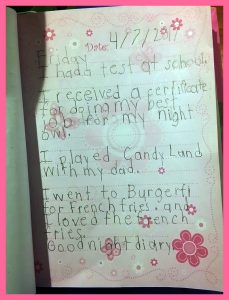 Date: 4/7/2017
Friday
I had a test at school.
I received a certificate
for doing my best
job for my night
owl.
I played Candy Land
with my dad.
I went to Burgerfi
for french fries. and
I loved the french
fries.
Good night diary